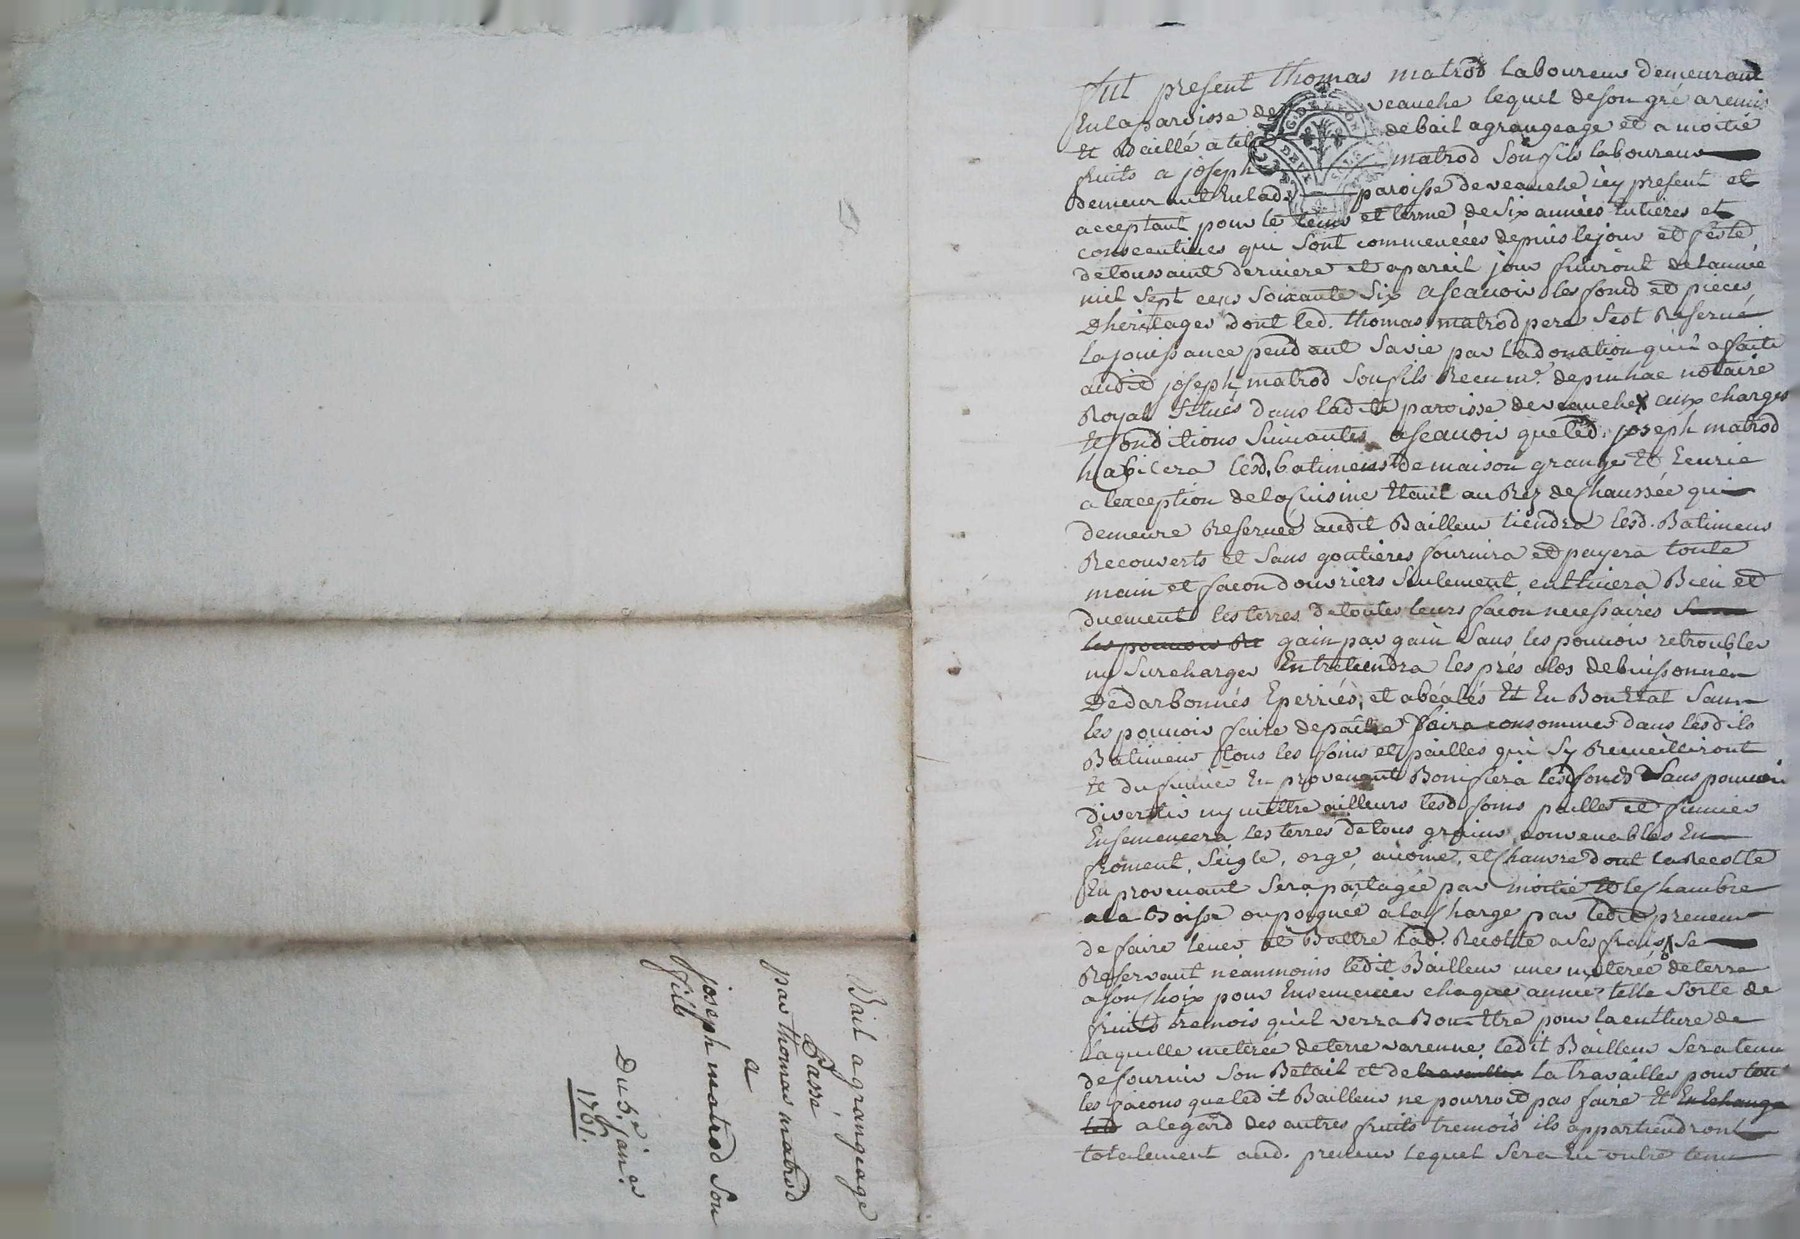 Bail a grangeage
Passé
par thomas matrod
a
joseph matrod son
fils
Du 5e janer
1761.
fut present thomas matrod laboureur demeurant
En la paroisse de veauche lequel de son gré a remis
Et Baillé a titre de bail a grangeage et a moitié
fruits a joseph matrod son fils laboureur
demeurant En lade paroisse de veauche icy present et
acceptant pour le tems et terme de six années Entieres et
consecutives qui sont commencées depuis le jour et feste
de toussaint derniere et a pareil jour finiront de l'année
mil sept cens soixante six a scavoir les fond et pieces
D'heritages dont led. thomas matrod pere s'est Reservé
la jouissance pendant sa vie par la donation qu'il a faite
audit joseph matrod son fils Recu me. depinhac notaire
Royal situés dans ladite paroisse de veauche aux charges
Et Conditions suivantes a scavoir que led. joseph matrod
habitera lesd. batimens de maison grange Et Ecurie
a l'exception de la Cuisine Etant au Rez de Chaussée qui
demeure Reservée audit Bailleur tiendra lesd. Batimens
Recouverts et sans goutieres fournira et payera toute
main et facon d'ouvriers seulement, cultivera Bien et
duement les terres de toutes leurs facon necessaires sans
les pouvoir Re gain par gain sans les pouvoir retroubler
ny surcharger Entretiendra les prés clos debuissonnés
Dedarbonnés Eperriés, et abéalés Et En Bon Etat sans
les pouvoir faire depaitre faira consommer dans lesdits
Batimens tous les foins et pailles qui s'y Recueilliront
Et du fumier En provenant Bonifiera lesd fonds sans pouvoir
divertir ny mettre ailleurs lesd foins pailles et fumier
Ensemencera les terres de tous grains convenables En
froment, seigle, orge, avoine, et Chanvre dont la Recolte
En provenant sera partagée par moitié Et le Chambre
a la Boisse ou poignée a la Charge par ledit preneur
de faire lever et Battre lad. Recolte a ses frais se
Reservant néanmoins ledit Bailleur une meterée de terre
a son Choix pour Ensemencer chaque année telle sorte de
fruits tremois qu'il verra Bon Etre pour la culture de
laquelle meterée de terre varenne, ledit Bailleur sera tenu
de fournir son Betail et de travailler la travailler pour tout
les facons que ledit Bailleur ne pourroit pas faire Et En Echange
led a l'egard des autres fruits tremois ils appartiendront
totalement aud. preneur lequel sera En outre tenu